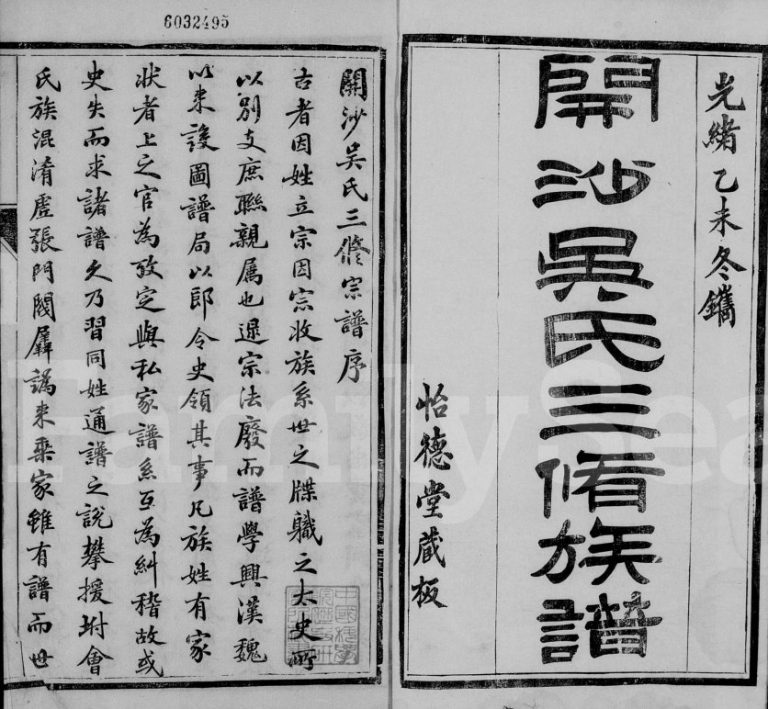 6032495
光緒乙未冬鐫
開沙吳氏三脩族譜
怡德堂藏板
開沙吳氏三修宗譜序
古者因姓立宗因宗收族系世之牒職之太史所
以別支庶聯親屬也逞宗法廢而譜學興漢魏
以来設圖譜局以郎令史領其事凡族姓有家
狀者上之官為攷定與私家譜系互為糾稽故或
史失而求諸譜久乃習同姓通譜之說攀援坿會
氏族混淆虛張門閥羼譌来乘家雖有譜而世
FamilySea